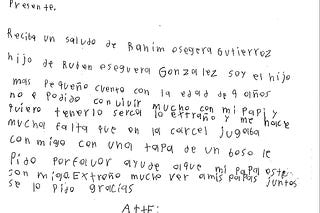 Presente.
Reciba un saludo de Rahim osegera Gutierrez
hijo de Ruben eseguera Gonzalez soy el hijo
mas pequeño cuento con la edad de 9 años
no e podido convivir mucho con mi papi y
quiero tenerlo serca lo extraño y me hace
mucha falta que en la carcel jugaba
conmigo con una tapa de un boso le
Pido porfaluor ayude aque mi papa este
conmigo Extraño mucho ver amis papas juntos
se lo pido gracias
ATTE: